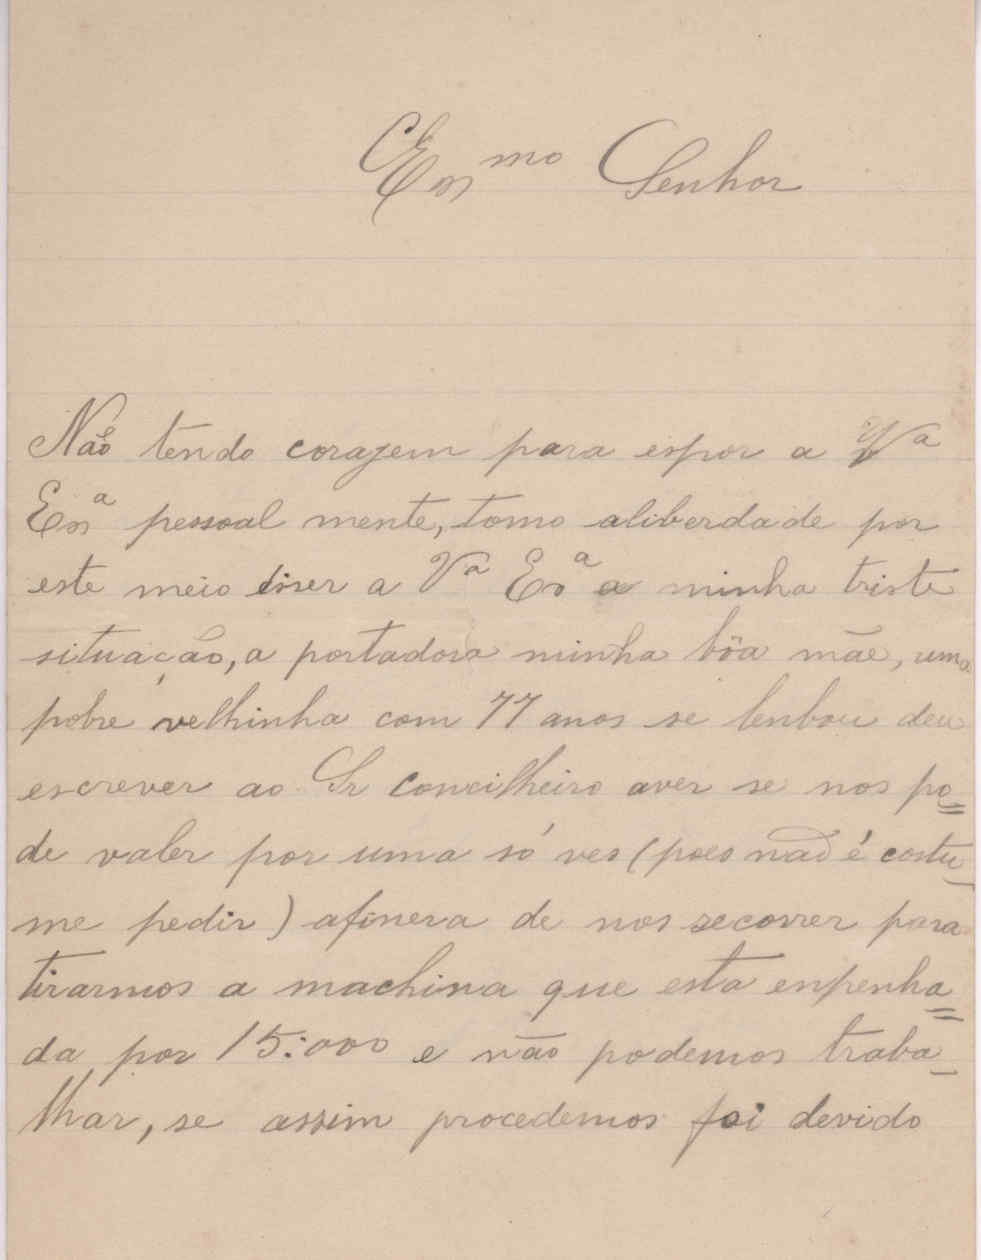 Exmo Senhor
Não tendo coragem para espor a Va
Exa pessoal mente, tomo aliberdade por
este meio diser a Va Exa a minha triste
situação, a portadora minha bôa mãe, uma
pobre velhinha com 77 anos se lenbou deu
escrever ao Sr Concilheiro aver se nos po=
de valer por uma só ves (pois não é costu_
me pedir) afinera de nos secorrer para
tirarmos a machina que esta enpenha=
da por 15:000 e não podemos traba_
lhar, se assim procedemos foi devido